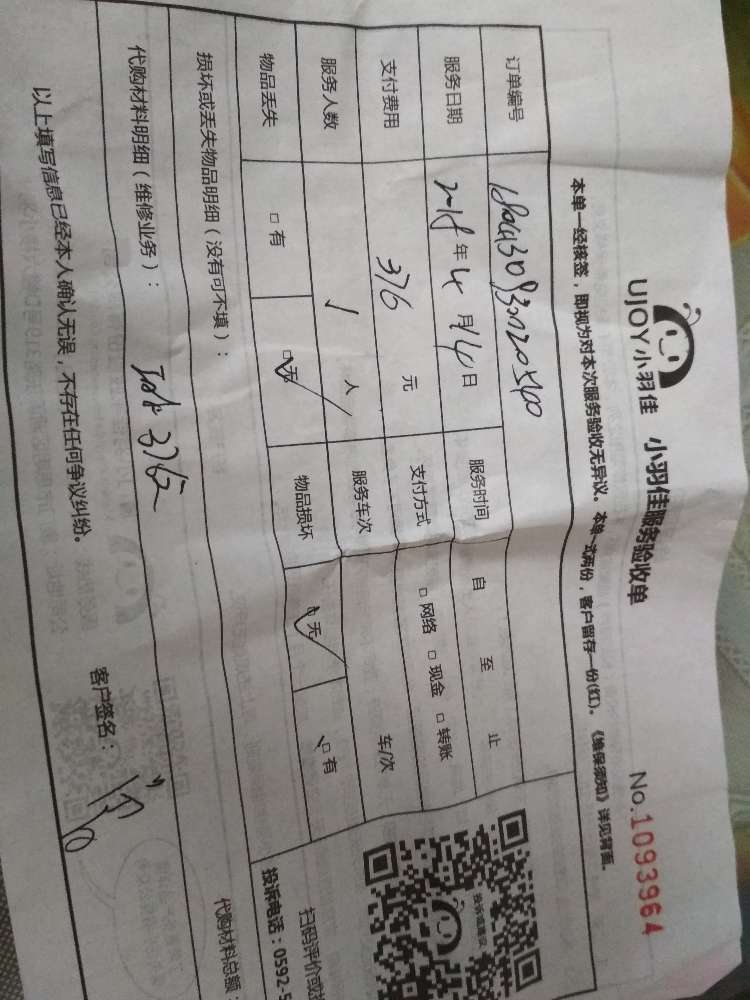 UJOY小羽佳 小羽佳服务验收单 No.1093964
本单一经核签，即视为对本次服务验收无异议。本单一式两份，客户留存一份(红)。《维保须知》详见背面。
订单编号
服务日期 2018年4月14日 服务时间 自 至 止
支付费用 376元 支付方式 □网络 □现金 □转账
服务人数 1人 服务车次 车/次
物品丢失 □有 □无 物品损坏 □无 □有
损坏或丢失物品明细（没有可不填）：
扫码评价或
投诉电话：0592-5
代购材料明细（维修业务）： 376元
代购材料总额：
以上填写信息已经本人确认无误，不存在任何争议纠纷。 客户签名：
投诉或建议